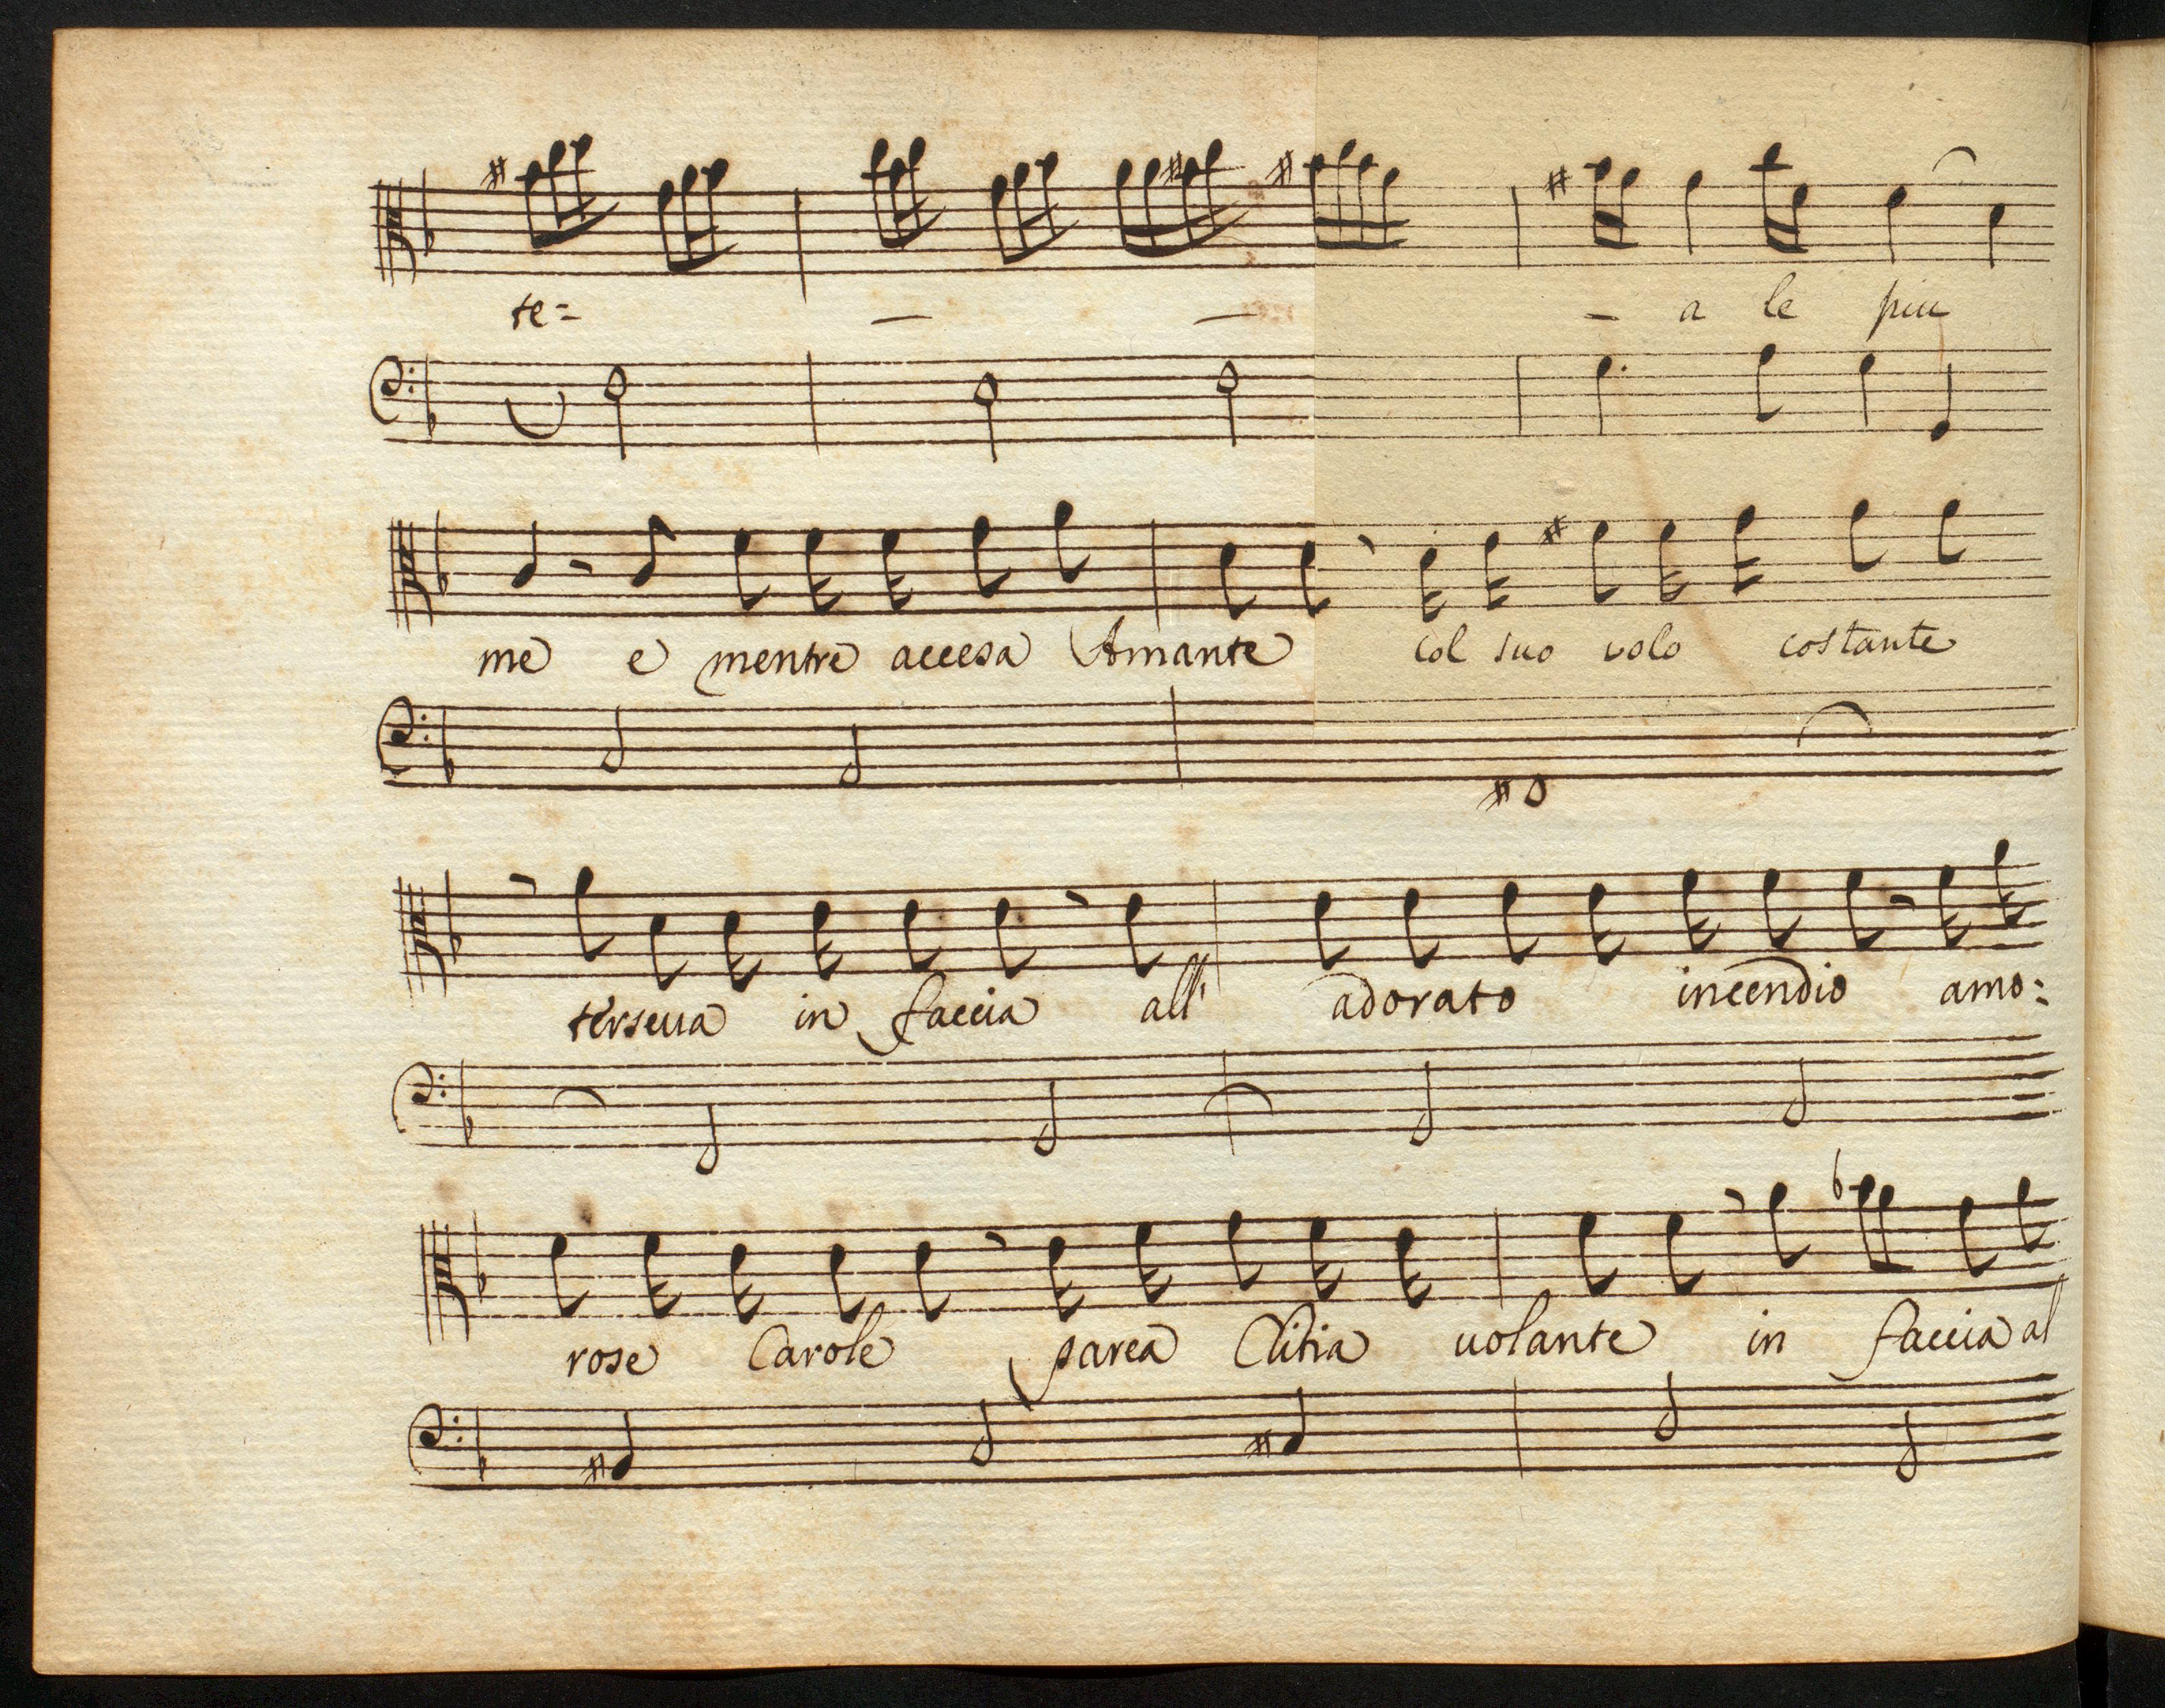 te= — — — a le piu
me e mentre accesa Amante col suo volo costante
terseua in faccia all' adorato incendio amo:
rose Carole parea Clitia uolante in faccia al